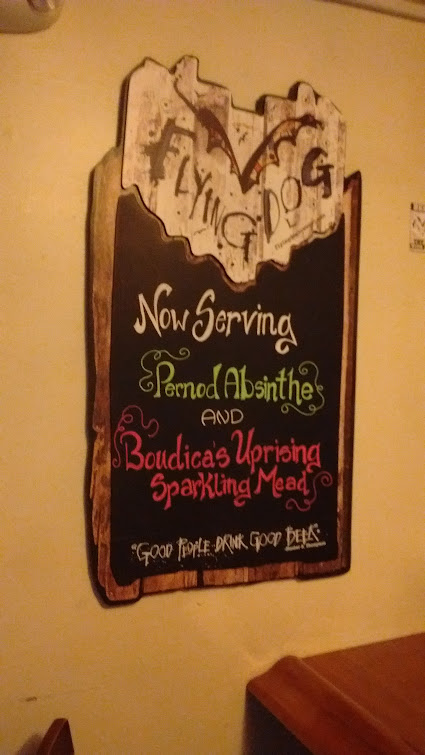 FLYING DOG
Now Serving
Pernod Absinthe
AND
Boudica's Uprising
Sparkling Mead
"GOOD PEOPLE DRINK GOOD BEER"